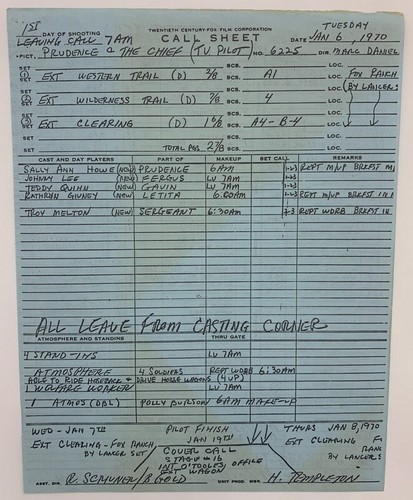 1ST DAY OF SHOOTING TWENTIETH CENTURY-FOX FILM CORPORATION TUESDAY
LEAVING CALL 7AM CALL SHEET DATE JAN 6, 1970
PICT. PRUDENCE & THE CHIEF (TV PILOT) NO. 6225 DIR. MARC DANIEL
SET EXT WESTERN TRAIL (D) 2/8 SCS. A1 LOC. FOX RANCH
SET SCS. LOC. BY LANCERS
SET EXT WILDERNESS TRAIL (D) 2/8 SCS. 4 LOC.
SET SCS. LOC.
SET EXT CLEARING (D) SCS. A4-B-4 LOC.
SET TOTAL PGS. SCS. LOC.
CAST AND DAY PLAYERS PART OF MAKEUP SET CALL REMARKS
SALLY ANN HOWE (NEW) PRUDENCE 6AM REPT M/UP BRKFST
JOHNNY LEE (NEW) FERGUS LV 7AM
TEDDY QUINN (NEW) GAVIN LV 7AM
KATHRYN GIUNEY (NEW) LETITA 6:00AM REPT M/UP BRKFST IN
TROY MELTON (NEW) SERGEANT 6:30AM REPT WDRB BRKFST IN
ALL LEAVE FROM CASTING CORNER
ATMOSPHERE AND STANDINS THRU GATE
4 STAND-INS LV 7AM
ATMOSPHERE 4 SOLDIERS REPT WDRB 6:30AM
ABLE TO RIDE HORSEBACK & DRIVE HORSE WAGONS (4 UP)
1 WELFARE WORKER LV 7AM
1 ATMOS (DBL) POLLY BURSON 6AM MAKE-UP
WED - JAN 7TH PILOT FINISH THURS JAN 8, 1970
JAN 19TH
EXT CLEARING - FOX RANCH, EXT CLEARING
BY LANCER SET COVER CALL BY LANCERS
STAGE #16
INT O'TOOLES OFFICE
EXT WAGON
ASST. DIR. UNIT PROD. MGR. H. TEMPLETON